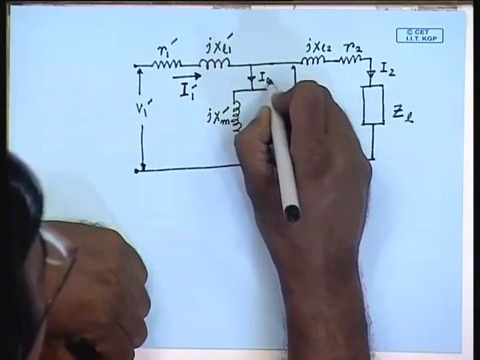 © CET
I.I.T. KGP
r₁′ jxℓ₁′ jxℓ₂ r₂
I₁′ I₂
V₁′ jxm′ Zℓ